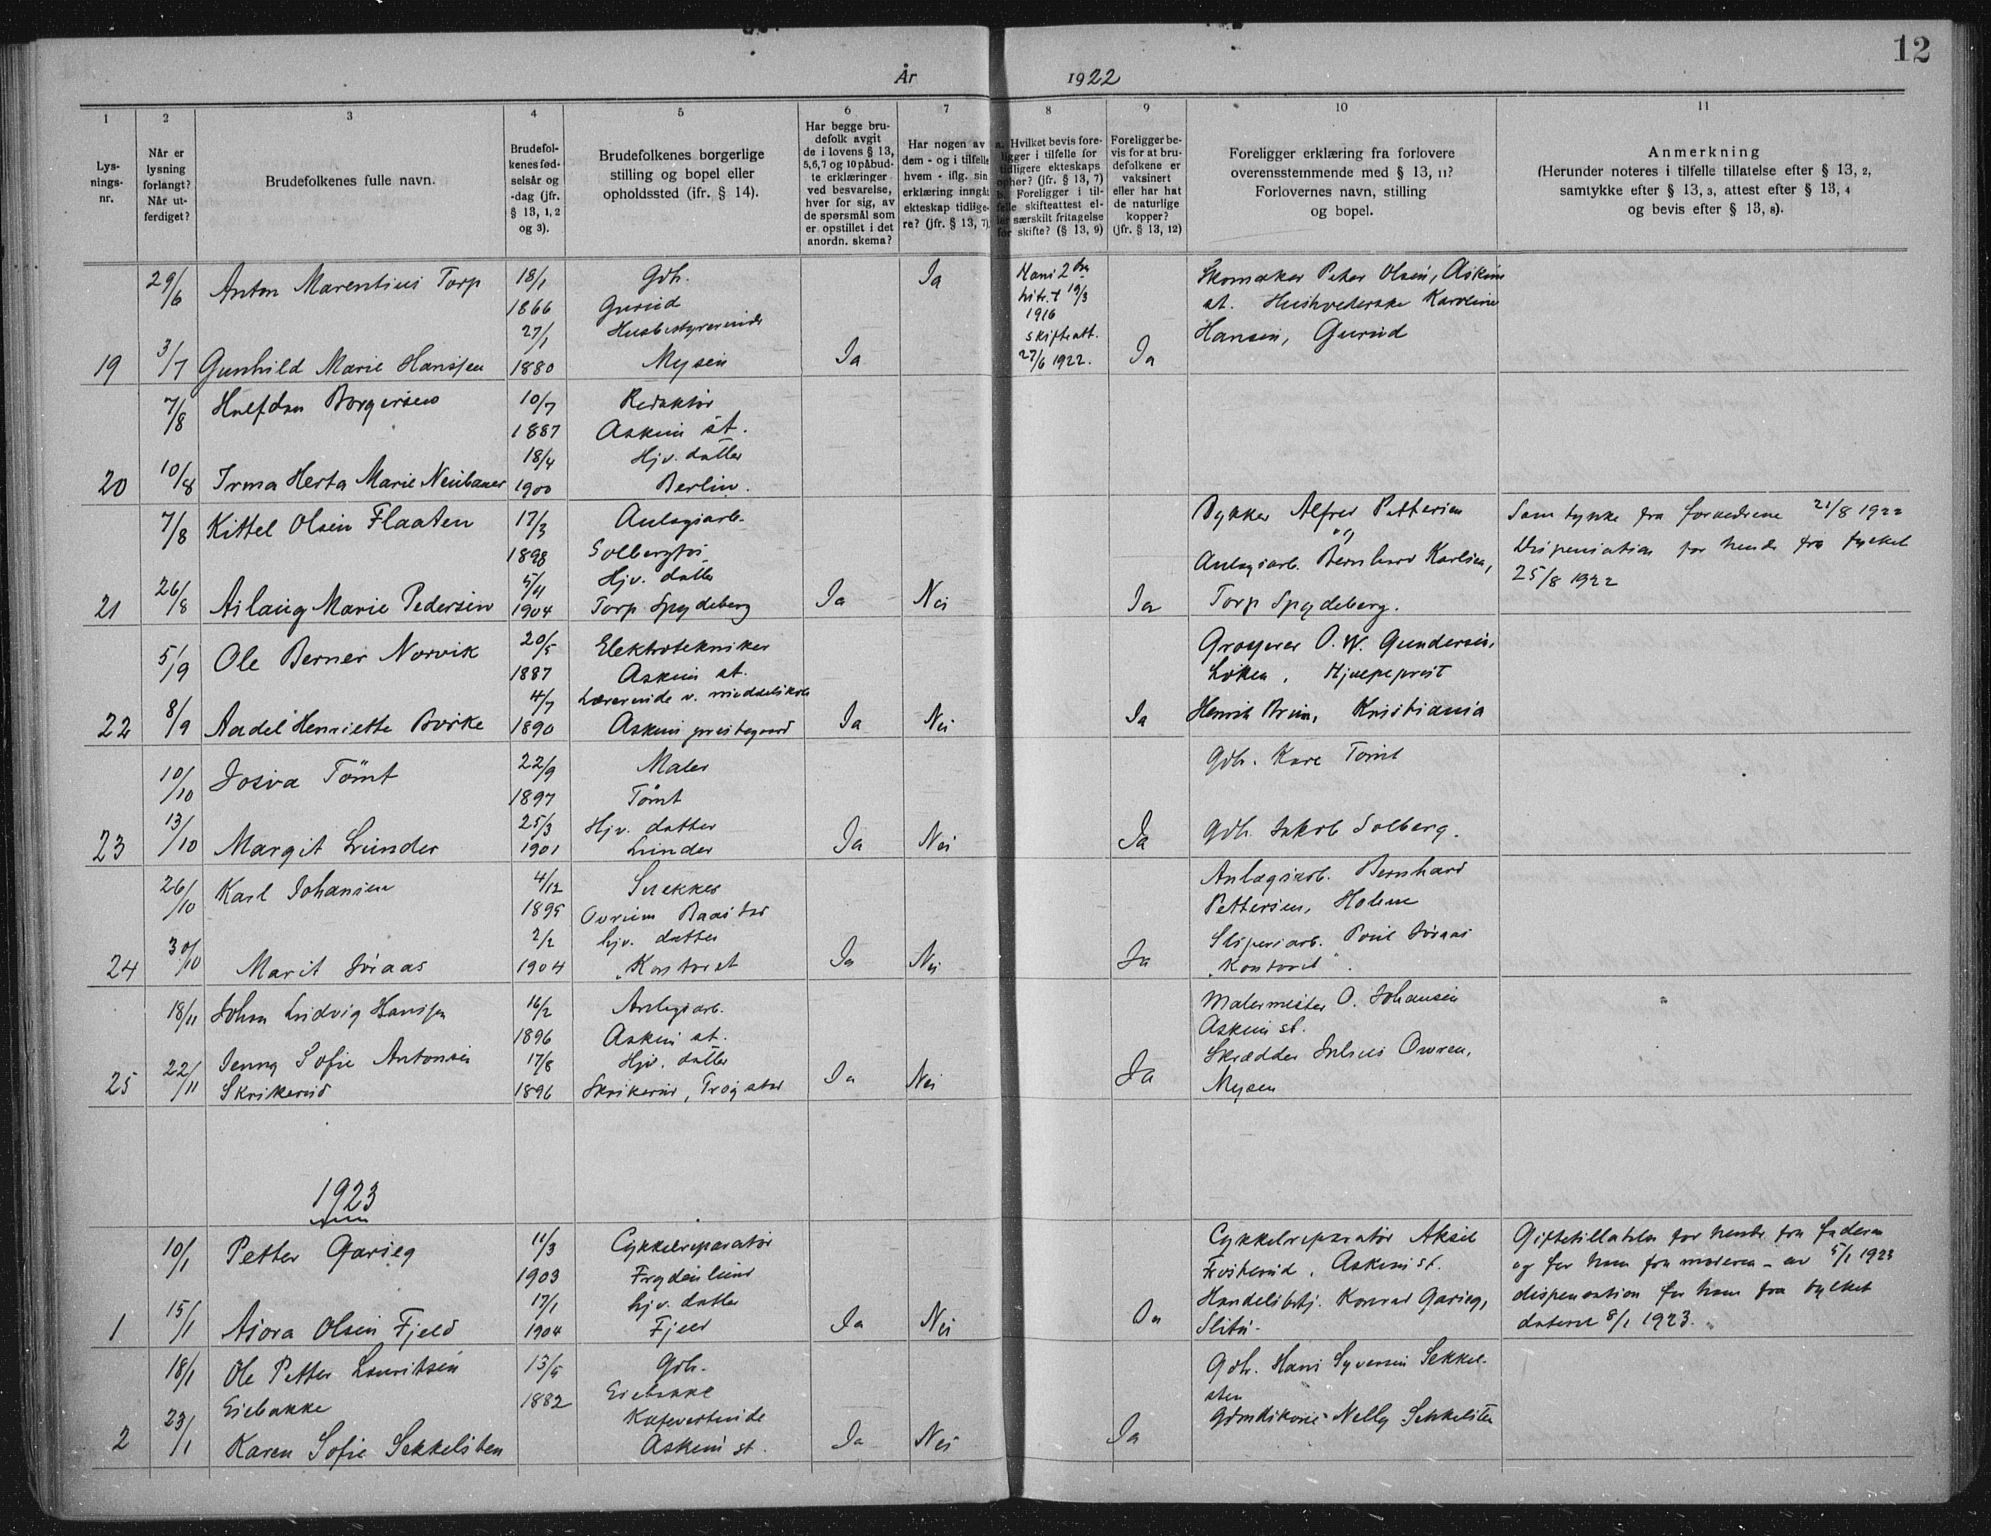 12
År 1922
1 2 3 4 5 6 7 8 9 10 11
Lys-
nings-
nr.
Når er
lysning
forlangt?
Når ut-
ferdiget?
Brudefolkenes fulle navn.
Brudefol-
kenes fød-
selsår og
-dag (jfr.
§ 13, 1, 2
og 3).
Brudefolkenes borgerlige
stilling og bopel eller
opholdssted (ifr. § 14).
Har begge bru-
defolk avgit
de i lovens § 13,
5,6,7 og 10 påbud-
te erklæringer
ved besvarelse,
hver for sig, av
de spørsmål som
er opstillet i det
anordn. skema?
Har nogen av
dem - og i tilfelle
hvem - iflg. sin
erklæring inngåt
ekteskap tidlige-
re? (jfr. § 13, 7).
a. Hvilket bevis fore-
ligger i tilfelle for
tidligere ekteskaps
ophør? (jfr. § 13, 7)
b. Foreligger i til-
felle skifteattest el-
ler særskilt fritagelse
for skifte? (§ 13, 9)
Foreligger be-
vis for at bru-
defolkene er
vaksinert
eller har hat
de naturlige
kopper?
(jfr. § 13, 12)
Foreligger erklæring fra forlovere
overensstemmende med § 13, 11?
Forlovernes navn, stilling
og bopel.
Anmerkning
(Herunder noteres i tilfelle tillatelse efter § 13, 2,
samtykke efter § 13, 3, attest efter § 13, 4
og bevis efter § 13, 8).
29/6 Anton Marentius Torp 18/1 1866 Gdb. Gurud Ja
Hans 2den
hustr. † 19/3
1916
skifteatt.
27/6 1922.
Skomaker Peter Olsen, Askim
st. Karoline
Hansen, Gurud
19 3/7 Gunhild Marie Hanssen 27/1 1880 Husbestyrerinde Mysen Ja Ja
7/8 Halfdan Borgersen 10/7 1887 Redaktør Askim st.
20 10/8 Irma Herta Marie Neubauer 18/4 1900 Hjv. datter Berlin.
7/8 Kittel Olsen Flaaten 17/3 1898 Anlegsarb. Solbergfos
21 26/8 Aslaug Marie Pedersen 5/11 1904 Hjv. datter Torp Spydeberg Ja Nei Ja
Dykker Alfred Pettersen
og
Anlegsarb. Bernhard Karlsen,
Torp Spydeberg.
Samtykke fra forældrene 21/8 1922
Dispensation for hende fra fylket
25/8 1922
5/9 Ole Berner Norvik 20/5 1887 Elektrotekniker Askim st.
22 8/9 Aadel Henriette Borke 4/7 1890 Lærerinde v. middelskole Askim prestegaard Ja Nei Ja
Grosserer O. W. Gundersen,
Løken, Hjælpeprest
Henrik Brun, Kristiania
10/10 Josva Tömt 22/9 1897 Maler Tömt
23 13/10 Margit Lunder 25/3 1901 Hjv. datter Lunder Ja Nei Ja
Gdb. Kare Tömt
Gdb. Jakob Solberg.
26/10 Karl Johansen 4/12 1895 Snekker Ovrium Baastad
24 30/10 Marit Joraas 2/2 1904 hjv. datter "Kontoret Ja Nei Ja
Anlægsarb. Bernhard
Pettersen, Holene
Sliperiarb. Poul Joraas
"Kontoret".
18/11 John Ludvig Hanssen 16/2 1896 Anlegsarb. Askim st.
25 22/11 Jenny Sofie Antonsen
Skrikerud 17/8 1896 Hjv. datter Skrikerud, Trøgstad Ja Nei Ja
Malermester O. Johansen
Askim st.
Skrædder Julius Owren,
Mysen
1923
10/1 Petter Garseg 11/3 1903 Cykkelreparatør Frydenlund
1 15/1 Asora Olsen Fjeld 17/1 1904 hjv. datter Fjeld Ja Nei Ja
Cykkelreparatør Aksel
Frøsherud, Askim st.
Handelsbetj. Konrad Garseg,
Slitu.
Giftetillatelse for hende fra faderen
og for ham fra moderen - av 5/1 1923
dispensation for ham fra fylket
datert 8/1 1923.
18/1 Ole Petter Lauritsen
Eiebakke 13/5 1882 Gdb. Eiebakke
2 23/1 Karen Sofie Sekkelsten Kafevertinde Askim st. Ja Nei Ja
Gdb. Hans Syversen Sekkel-
sten
Nelly Sekkelsten